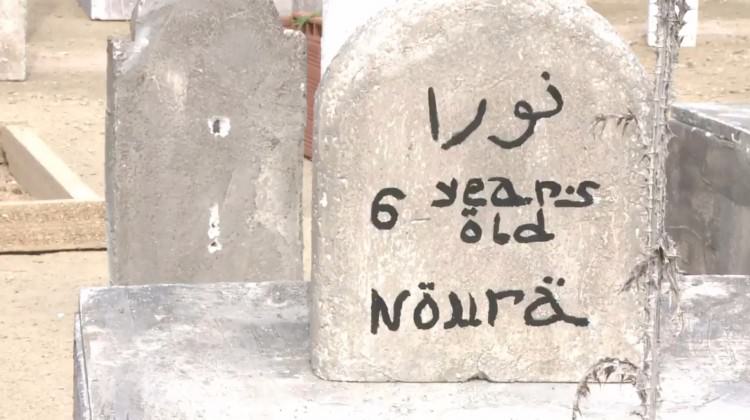 نورا
6 years
öld
Nöurä